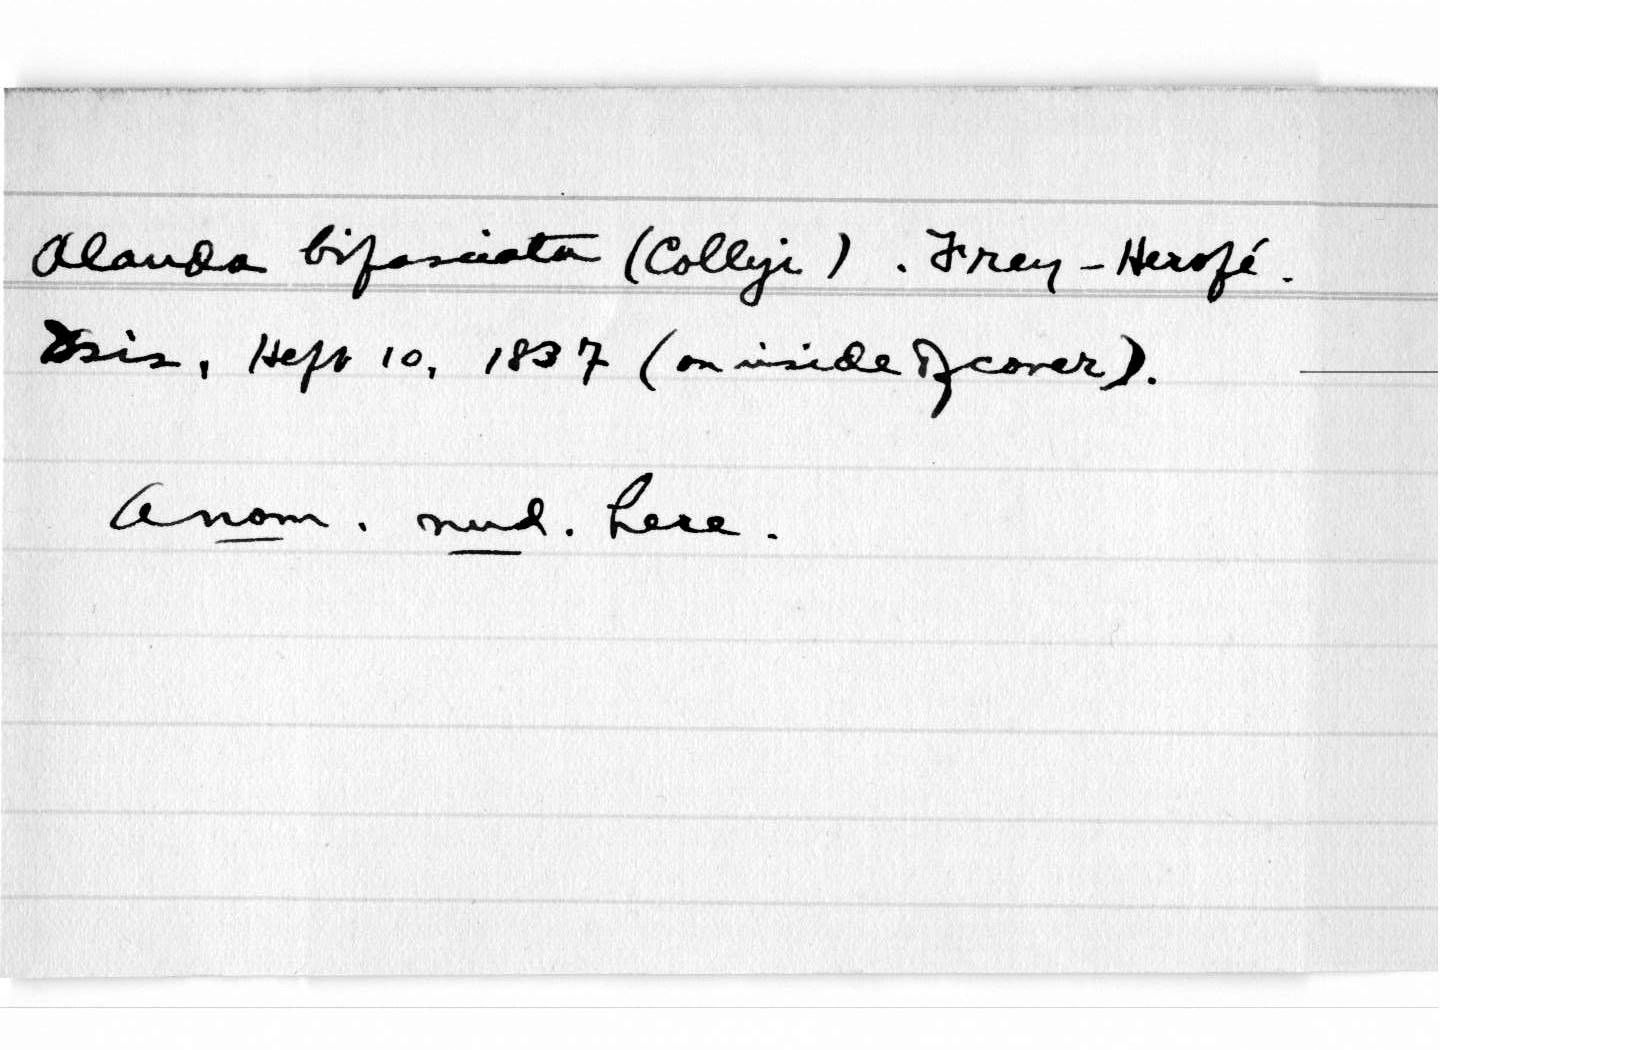 Alauda bifasciata (Colleji). Frey-Herosé.
Isis, Heft 10, 1837 (on inside of cover).
A nom. nud. here.